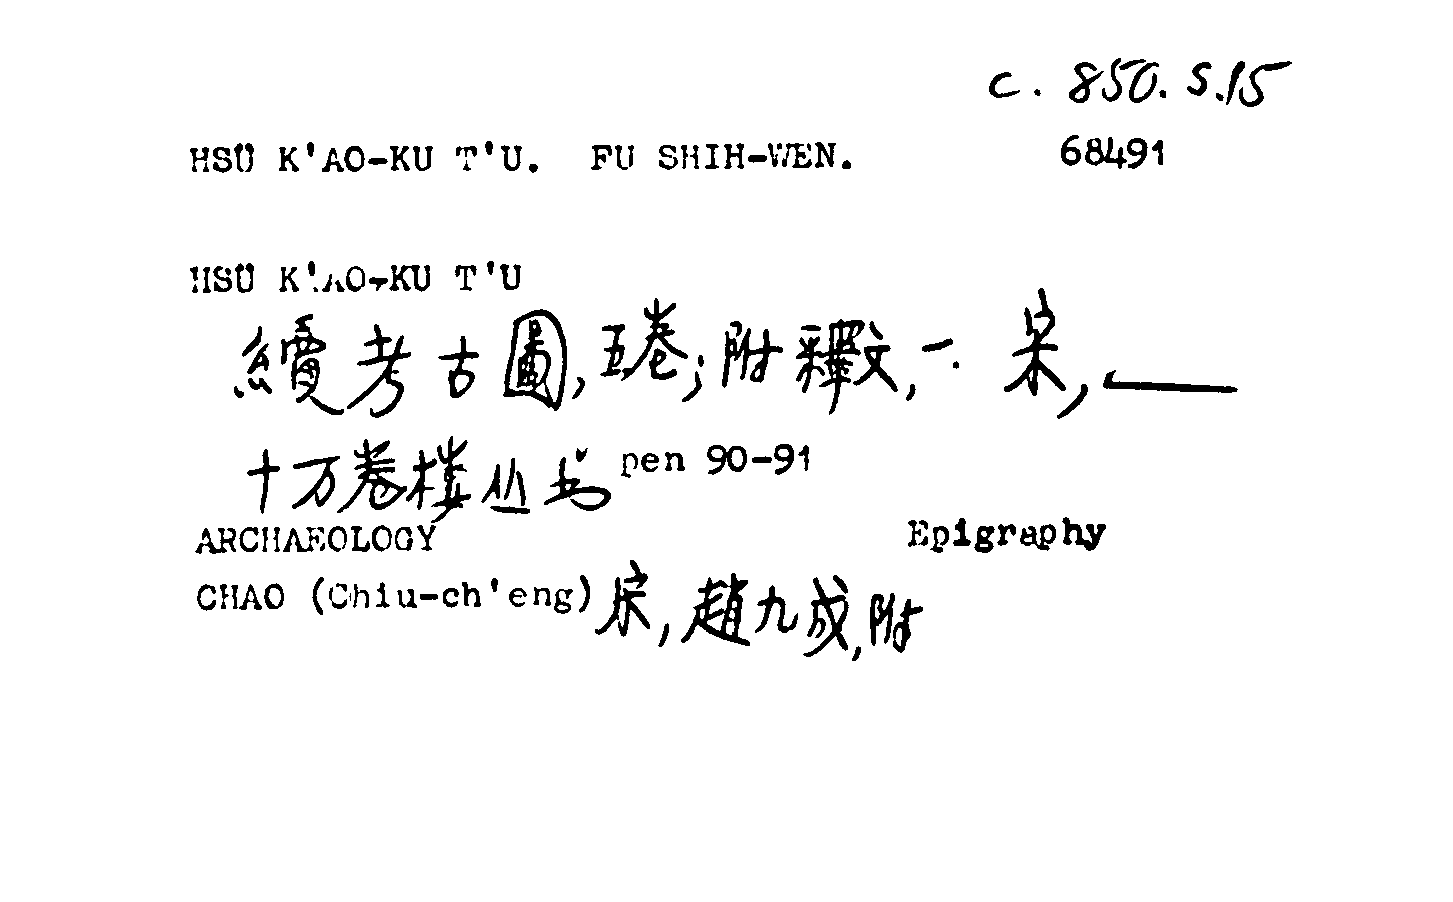 c. 850. S.15
HSÜ K'AO-KU T'U. FU SHIH-WEN. 68491
HSÜ K'AO-KU T'U
續考古圖, 五卷; 附釋文, 一. 宋, ——
十万卷樓丛书 pen 90-91
ARCHAEOLOGY Epigraphy
CHAO (Chiu-ch'eng) 宋, 趙九成, 附